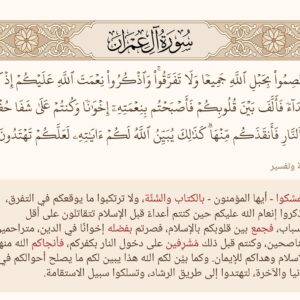 سُورَةُ آلِ عِمْرَان
صِمُوا۟ بِحَبْلِ ٱللَّهِ جَمِيعًا وَلَا تَفَرَّقُوا۟ ۚ وَٱذْكُرُوا۟ نِعْمَتَ ٱللَّهِ عَلَيْكُمْ إِذْ
دَآءً فَأَلَّفَ بَيْنَ قُلُوبِكُمْ فَأَصْبَحْتُم بِنِعْمَتِهِۦٓ إِخْوَٰنًا وَكُنتُمْ عَلَىٰ شَفَا
ٱلنَّارِ فَأَنقَذَكُم مِّنْهَا ۗ كَذَٰلِكَ يُبَيِّنُ ٱللَّهُ لَكُمْ ءَايَٰتِهِۦ لَعَلَّكُمْ تَهْتَدُونَ
وتفسير
سَّكوا - أيها المؤمنون - بالكتاب والسُّنَّة، ولا ترتكبوا ما يوقعكم في التفرق،
ذكروا إنعام الله عليكم حين كنتم أعداءً قبل الإسلام تتقاتلون على أقل
سباب، فجمع بين قلوبكم بالإسلام، فصرتم بفضله إخوانًا في الدين، متراحمين
ناصحين، وكنتم قبل ذلك مُشْرِفين على دخول النار بكفركم، فأنجاكم الله منها
لإسلام وهداكم للإيمان. وكما بيَّن لكم الله هذا يبين لكم ما يصلح أحوالكم في
نيا والآخرة، لتهتدوا إلى طريق الرشاد، وتسلكوا سبيل الاستقامة.